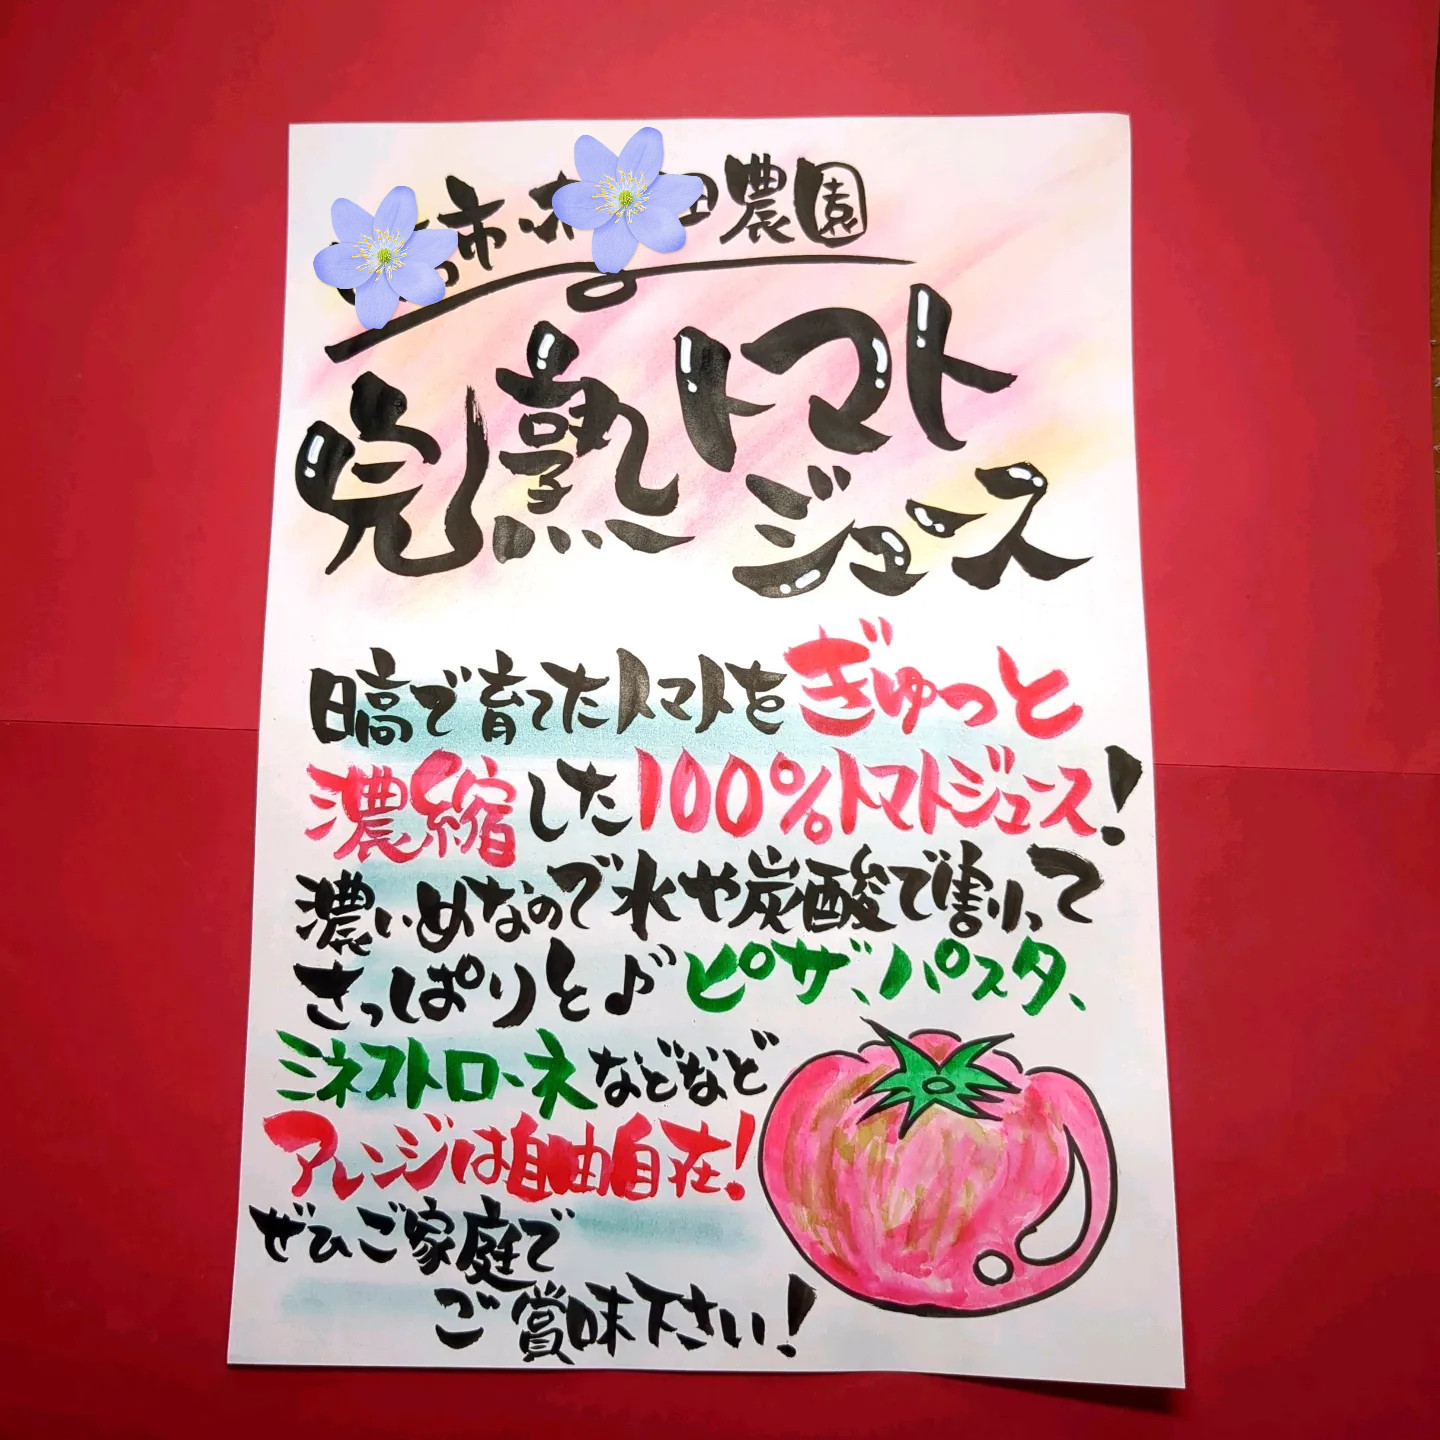 市
農園
完熟トマト
ジュース
日高で育てたトマトをぎゅっと
濃縮した100%トマトジュース!
濃いめなので水や炭酸で割って
さっぱりと♪ピザ、パスタ、
ミネストローネなどなど
アレンジは自由自在!
ぜひご家庭で
ご賞味下さい!